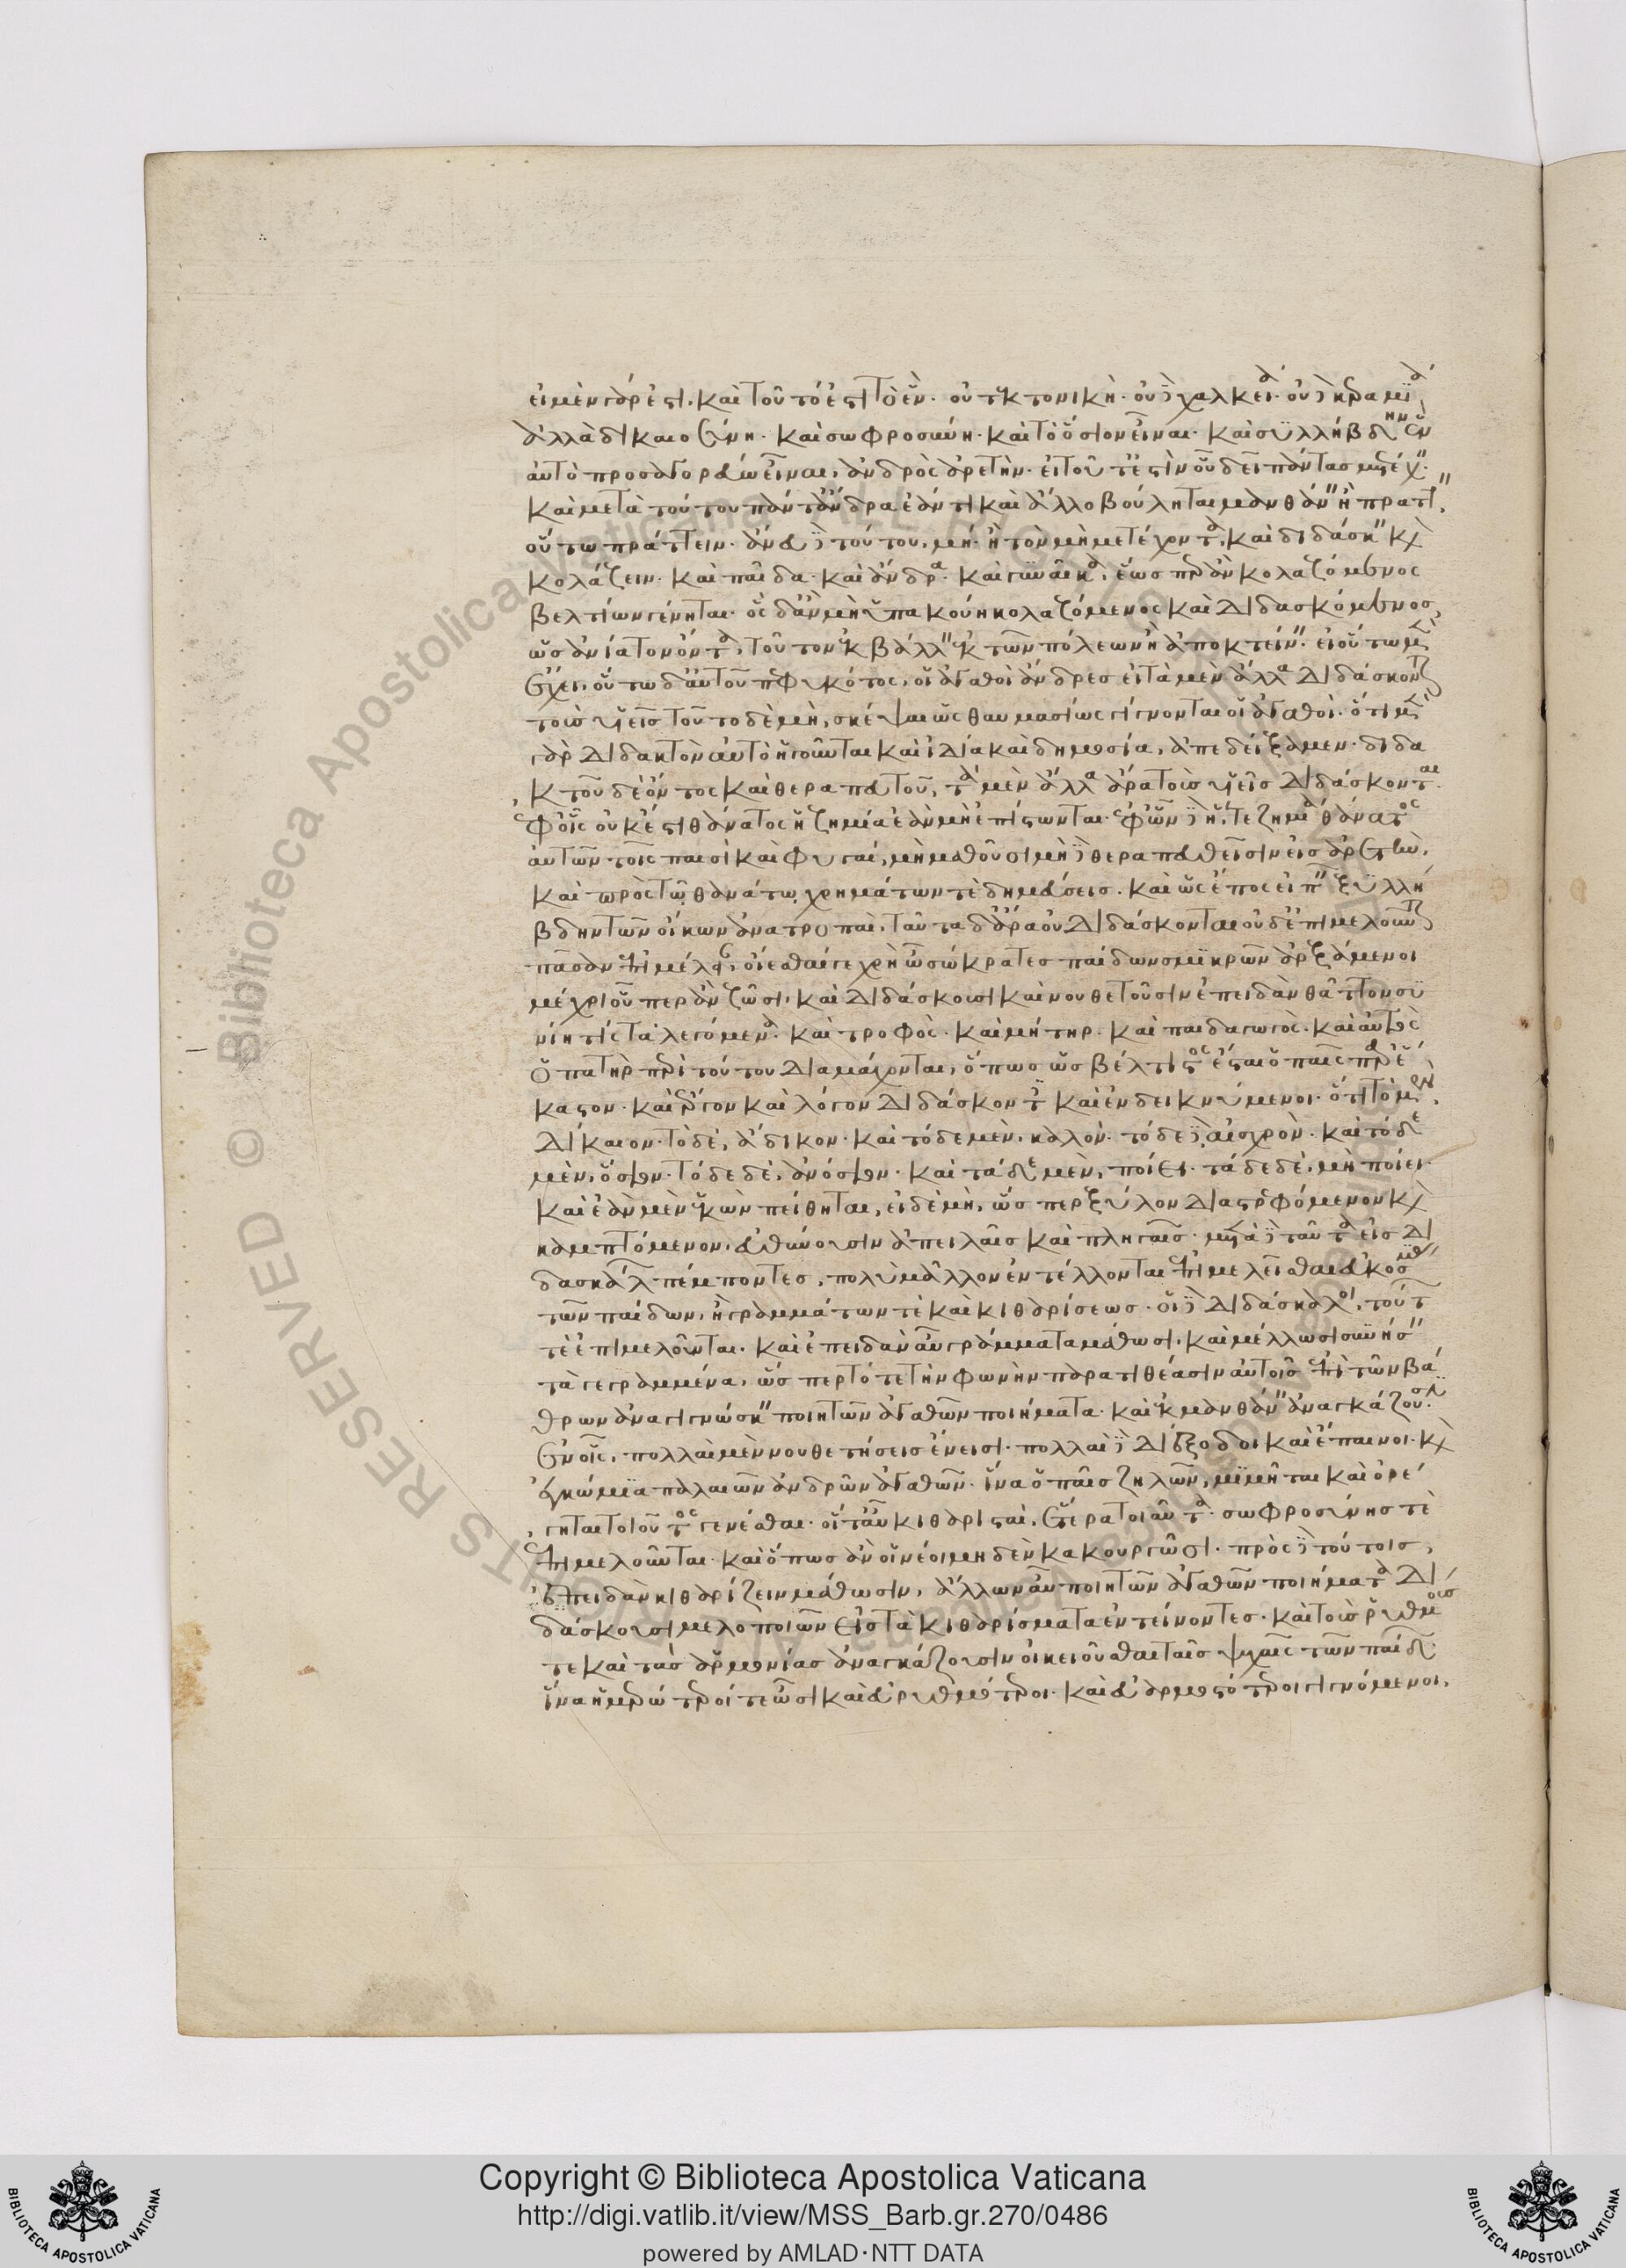 εἰ μὲν γὰρ ἔστι. καὶ τοῦτό ἐστι τὸ ἕν. οὐ τεκτονικὴ. οὐδὲ χαλκεία. οὐδὲ κεραμεία
ἀλλὰ δικαιοσύνη. καὶ σωφροσύνη. καὶ τὸ ὅσιον εἶναι. καὶ συλλήβδην ἓν
αὐτὸ προσαγορεύω εἶναι, ἀνδρὸς ἀρετὴν. εἰ τοῦτ' ἐστὶν οὗ δεῖ πάντας μετέχειν.
καὶ μετὰ τούτου πάντ' ἄνδρα ἐάν τι καὶ ἄλλο βούληται μανθάνειν ἢ πράττειν,
οὕτω πράττειν. ἄνευ δὲ τούτου, μή. ἢ τὸν μὴ μετέχοντα, καὶ διδάσκειν καὶ
κολάζειν. καὶ παῖδα. καὶ ἄνδρα. καὶ γυναῖκα, ἕωσπερ ἂν κολαζόμενος
βελτίων γένηται. ὃς δ' ἂν μὴ ὑπακούῃ κολαζόμενος καὶ διδασκόμενος,
ὡς ἀνίατον ὄντα, τοῦτον ἐκβάλλειν ἐκ τῶν πόλεων ἢ ἀποκτείνειν. εἰ οὕτω μὲν
ἔχει, οὕτω δ' αὐτοῦ πεφυκότος, οἱ ἀγαθοὶ ἄνδρες εἰ τὰ μὲν ἄλλα διδάσκονται
τοὺς υἱεῖς τοῦτο δὲ μὴ, σκέψαι ὡς θαυμασίως γίγνονται οἱ ἀγαθοί. ὅτι μὲν
γὰρ διδακτὸν αὐτὸ ἡγοῦνται καὶ ἰδία καὶ δημοσία, ἀπεδείξαμεν. διδα
κτοῦ δὲ ὄντος καὶ θεραπευτοῦ, τὰ μὲν ἄλλα ἄρα τοὺς υἱεῖς διδάσκονται.
ἐφ' οἷς οὐκ ἔστι θάνατος ἡ ζημία ἐὰν μὴ ἐπίστωνται. ἐφ' ὧν δὲ ἥ, τε ζημία θάνατος
αὐτῶν τοῖς παισὶ καὶ φυγαί, μὴ μαθοῦσι μὴ δὲ θεραπευθεῖσιν εἰς ἀρετὴν,
καὶ πρὸς τῷ θανάτῳ χρημάτων τὲ δημεύσεις. καὶ ὡς ἔπος εἰπεῖν ξυλλή
βδην τῶν οἴκων ἀνατροπαὶ, ταῦτα δ' ἄρα οὐ διδάσκονται οὐδ' ἐπιμελοῦνται
πᾶσαν ἐπιμέλειαν, οἴεσθαί γε χρὴ ὦ σώκρατες παίδων σμικρῶν ἀρξάμενοι
μέχρι οὗπερ ἂν ζῶσι, καὶ διδάσκουσι καὶ νουθετοῦσιν ἐπειδὰν θᾶττον συ
νίῃ τίς τὰ λεγόμενα. καὶ τροφὸς. καὶ μήτηρ. καὶ παιδαγωγὸς. καὶ αὐτὸς
ὁ πατὴρ περὶ τούτου διαμάχονται, ὅπως ὡς βέλτιστος ἔσται ὁ παῖς παρ' ἕ
καστον. καὶ ἔργον καὶ λόγον διδάσκοντες καὶ ἐνδεικνύμενοι. ὅτι τὸ μὲν,
δίκαιον. τὸ δὲ, ἄδικον. καὶ τόδε μὲν, καλὸν. τόδε δὲ, αἰσχρὸν. καὶ τόδε
μὲν, ὅσιον. τόδε δὲ, ἀνόσιον. καὶ τάδε μὲν, ποίει. τάδε δὲ, μὴ ποίει.
καὶ ἐὰν μὲν ἑκὼν πείθηται, εἰ δὲ μὴ, ὥσπερ ξύλον διαστρεφόμενον καὶ
καμπτόμενον, εὐθύνουσιν ἀπειλαῖς καὶ πληγαῖς. μετὰ δὲ ταῦτα εἰς δι
δασκάλων πέμποντες, πολὺ μᾶλλον ἐντέλλονται ἐπιμελεῖσθαι εὐκοσμίας
τῶν παίδων, ἢ γραμμάτων τὲ καὶ κιθαρίσεως. οἱ δὲ διδάσκαλοι, τούτων
τὲ ἐπιμελοῦνται. καὶ ἐπειδὰν αὖ γράμματα μάθωσι, καὶ μέλλωσι συνήσειν
τὰ γεγραμμένα, ὥσπερ τότε τὴν φωνὴν παρατιθέασιν αὐτοῖς ἐπὶ τῶν βά
θρων ἀναγιγνώσκειν ποιητῶν ἀγαθῶν ποιήματα. καὶ ἐκμανθάνειν ἀναγκάζουσιν.
ἐν οἷς, πολλαὶ μὲν νουθετήσεις ἔνεισι. πολλαὶ δὲ διέξοδοι καὶ ἔπαινοι. καὶ
ἐγκώμια παλαιῶν ἀνδρῶν ἀγαθῶν. ἵνα ὁ παῖς ζηλῶν, μιμῆται καὶ ὀρέ
γηται τοιοῦτος γενέσθαι. οἵ τ' αὖ κιθαρισταί, ἕτερα τοιαῦτα. σωφροσύνης τὲ
ἐπιμελοῦνται. καὶ ὅπως ἂν οἱ νέοι μηδὲν κακουργῶσι. πρὸς δὲ τούτοις,
ἐπειδὰν κιθαρίζειν μάθωσιν, ἄλλων αὖ ποιητῶν ἀγαθῶν ποιήματα δι
δάσκουσι μελοποιῶν εἰς τὰ κιθαρίσματα ἐντείνοντες. καὶ τοὺς ῥυθμούς
τε καὶ τὰς ἁρμονίας ἀναγκάζουσιν οἰκειοῦσθαι ταῖς ψυχαῖς τῶν παίδων
ἵνα ἡμερώτεροί τε ὦσι καὶ εὐρυθμότεροι. καὶ εὐαρμοστότεροι γιγνόμενοι,
Copyright © Biblioteca Apostolica Vaticana
http://digi.vatlib.it/view/MSS_Barb.gr.270/0486
powered by AMLAD·NTT DATA